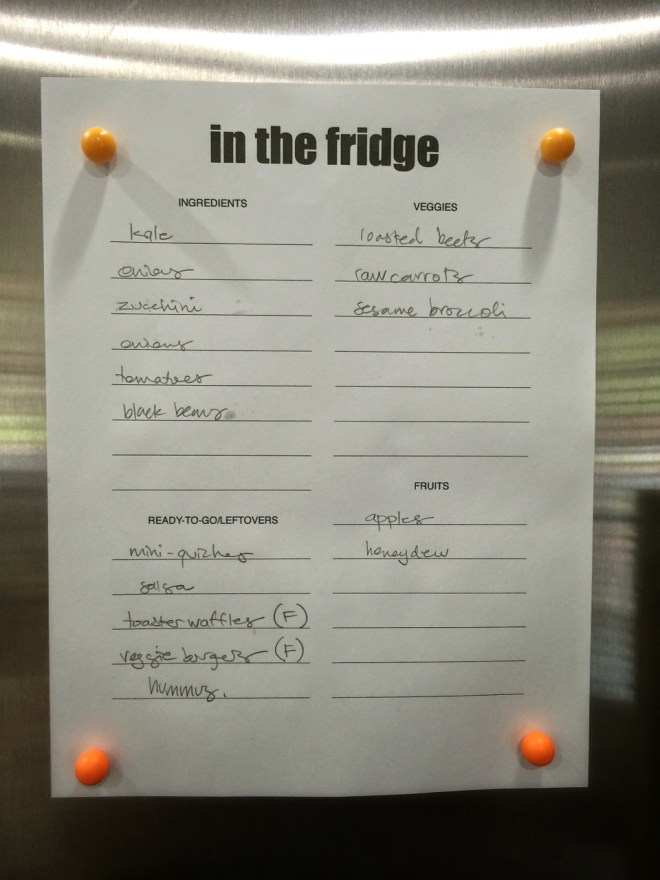 in the fridge
INGREDIENTS
kale
onions
zucchini
onions
tomatoes
black beans
READY-TO-GO/LEFTOVERS
mini-quiches
salsa
toaster waffles (F)
veggie burgers (F)
hummus.
VEGGIES
roasted beets
raw carrots
sesame broccoli
FRUITS
apples
honeydew